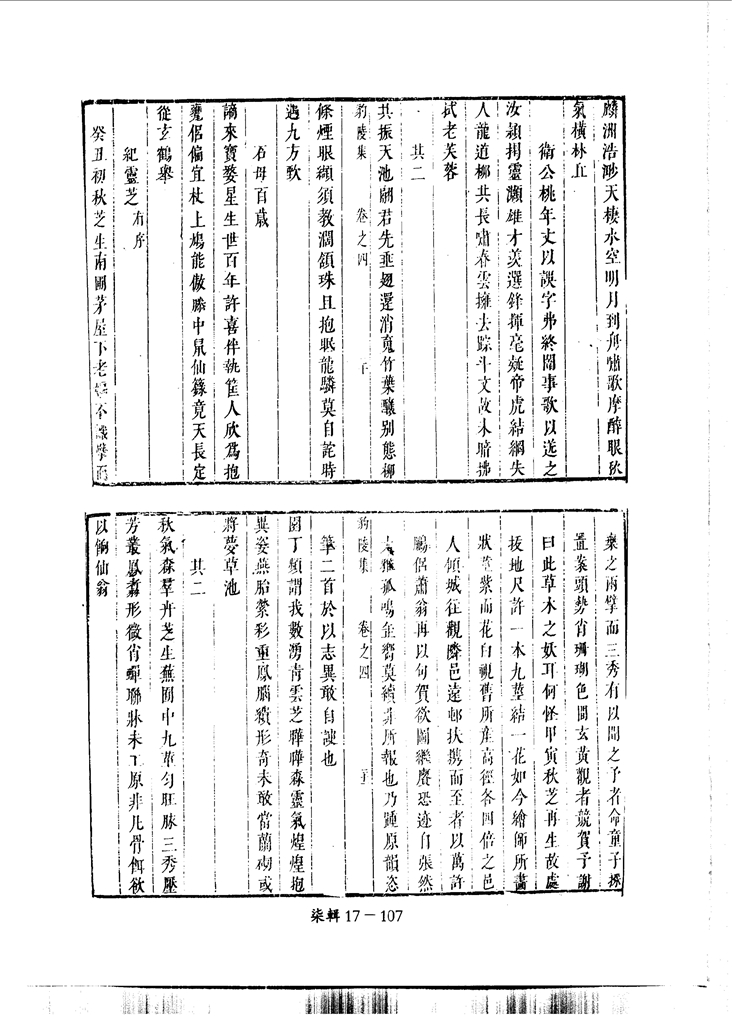 麟洲浩渺天棲水空明月到舟嘯歌摩醉眼秋
氣橫林丘
衛公桃年丈以誤字弗終闈事歌以送之
汝潁搆靈瀨雄才羨選鋒揮亳疑帝虎結綱失
人龍道柳共長嘯春雲擁去踪斗文故未暗拂
拭老芙蓉
其二
共振天池翮君先垂翅還消寬竹葉釀别態柳
豹陵集 卷之四
條煙眼纈須教濶頷珠且抱眠龍驎莫自詫時
遇九方歅
石母百歲
謫來寶婺星生世百年許喜伴執筐人欣爲抱
甕侣偏宜杖上鳩能傲滕中鼠仙籙竟天長定
從玄鶴舉
紀靈芝有序
癸丑初秋芝生南園茅屋下老 不識擘而
棄之雨擘而三秀有以聞之予者命童子採
置案頭勢肖珊瑚色間玄黃觀者競賀予謝
曰此草木之妖耳何怪甲寅秋芝再生故處
拔地尺許一本九莖結一花如今繪師所畫
狀莖紫而花白視舊所産高徑各四倍之邑
人傾城往觀隣邑遠邨扶攜而至者以萬許
鵬侣蕭翁再以句賀欲圖繼賡恐迹自張然
孤鳴金嚮莫續非所報也乃踵原韻忞
豹陵集 卷之四
筆二首於以志異敢自諛也
園丁頻謂我數湧青雲芝曄曄森靈氣煌煌抱
異姿燕胎縈彩重鳳腦纈形奇未敢當蘭砌或
將夢草池
其二
秋氣森羣卉芝生蕪園中九華勻旺脉三秀壓
芳叢鳳翥形徵肖蟬聯牀未工原非凡骨餌欲
以餉仙翁
柒輯 17－107